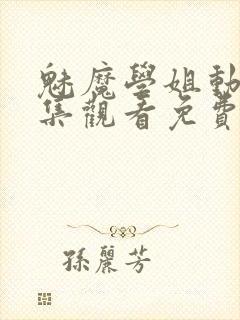 魅魔學姐動
集觀看免費
孫麗芳